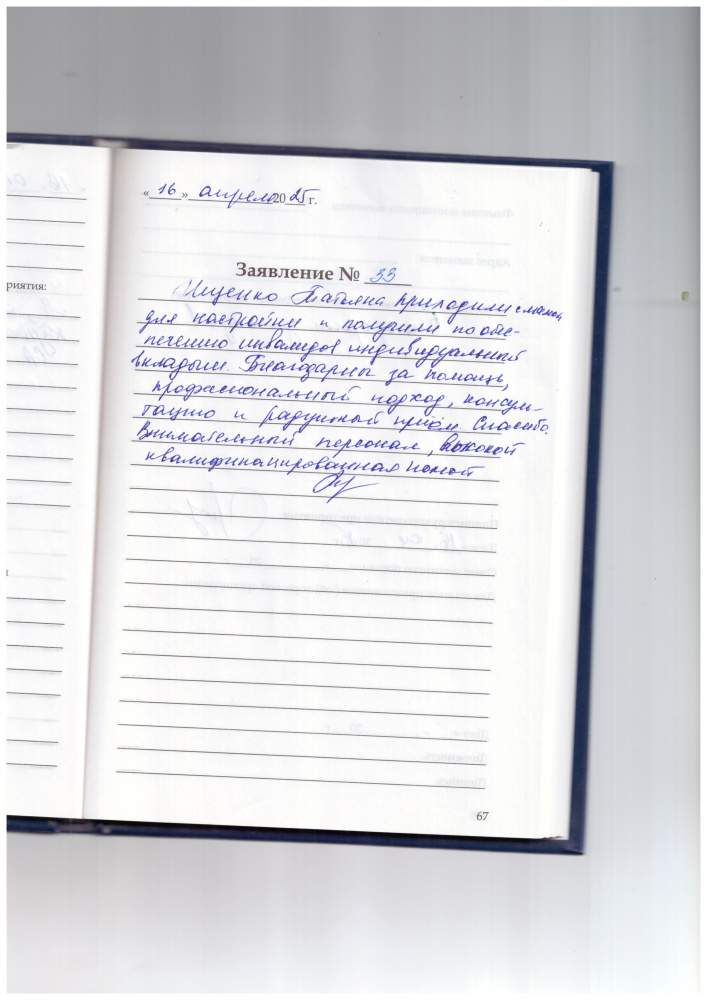 приятия:
« 16 » апреля 20 25 г.
Заявление № 33
Ищенко Татьяна приходили с мамой
для настройки и получили по обес-
печению инвалидов индивидуальный
вкладыш. Благодарны за помощь,
профессиональный подход, консуль-
тацию и радушный приём. Спасибо.
Внимательный персонал, высокой
квалифицированная
67